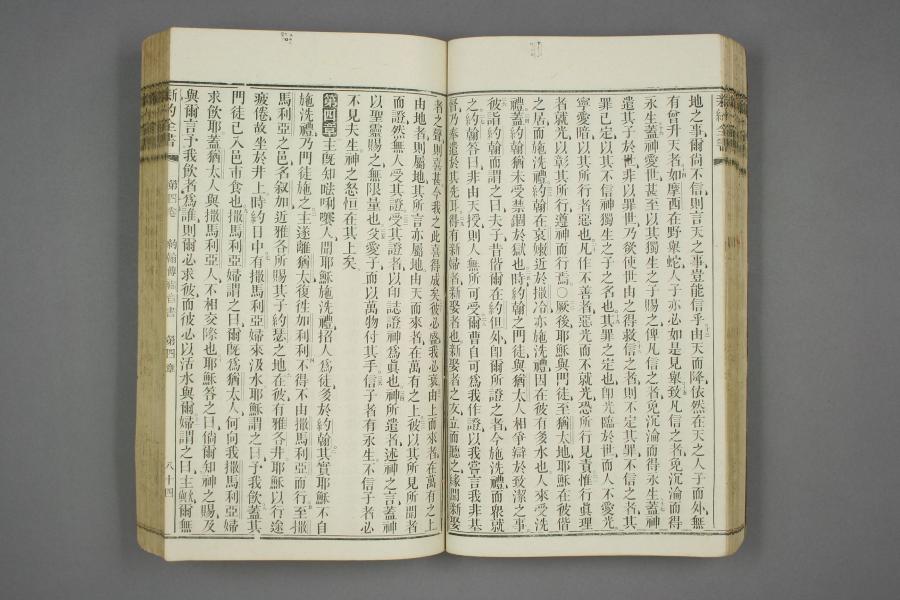 地之事爾尚不信則言天之事豈能信乎由天而降依然在天之人子而外無
有曾升天者如摩西在野舉蛇人子亦必如是見舉致凡信之者免沉淪而得
永生蓋神愛世甚至以其獨生之子賜之俾凡信之者免沉淪而得永生蓋神
遣其子於世非以罪世乃欲使世由之得救信之者則不定其罪不信之者其
罪已定以其不信神獨生之子之名也其罪之定也卽光臨於世而世人不愛光
寧愛暗以其所行者惡也凡作不善者惡光而不就光恐所行見責惟行眞理
者就光以彰其所行遵神而行焉○厥後耶穌與門徒至猶太地耶穌在彼偕
之居而施洗禮約翰在哀嫩近於撒冷亦施洗禮因在彼有多水也人來受洗
禮蓋約翰猶未受禁錮於獄也時約翰之門徒與猶太人相爭辯於致潔之事
彼詣約翰而謂之曰夫子昔偕爾在約但外卽爾所證之者今施洗禮而衆就
之約翰答曰非由天授則人無所可受爾曹自可爲我作證以我嘗言我非基
督乃奉遣於其先耳得有新婦者新娶者也新娶者之友立而聽之緣聞新娶
者之聲則喜甚今我之此喜得成矣彼必盛我必衰由上而來者在萬有之上
由地者則屬地其所言亦屬地由天而來者在萬有之上彼以其所見所聞者
而證然無人受其證受其證者以印誌證神爲眞也神所遣者述神之言蓋神
以聖靈賜之無限量也父愛子而以萬物付其手信子者有永生不信子者必
不見夫生神之怒恒在其上矣
第四章 主旣知𠵽唎㘔人聞耶穌施洗禮招人爲徒多於約翰其實耶穌不自
施洗禮乃門徒施之主遂離猶太復徃加利利不得不由撒馬利亞而行至撒
馬利亞之邑名叙加近雅各所賜其子約瑟之地在彼有雅各井耶穌以行途
疲倦故坐於井上時約日中有撒馬利亞婦來汲水耶穌謂之曰予我飲蓋其
門徒已入邑市食也撒馬利亞婦謂之曰爾旣爲猶太人何向我撒馬利亞婦
求飲耶蓋猶太人與撒馬利亞人不相交際也耶穌答之曰倘爾知神之賜及
與爾言予我飲者爲誰則爾必求彼而彼必以活水與爾婦謂之曰主歟爾無
新約全書 第四卷 約翰傳福音書 第四章 八十四